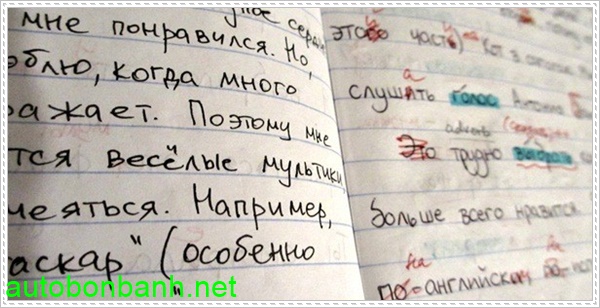 мне понравился. Но,
блю, когда много
ажает. Поэтому мне
тся весёлые мультики
меяться. Например,
аскар" (особенно
этого часть) Кот в
а
слушать голос Антонио
adverb
Это трудно
больше всего нравится
на
по-английски по-
autobonbanh.net